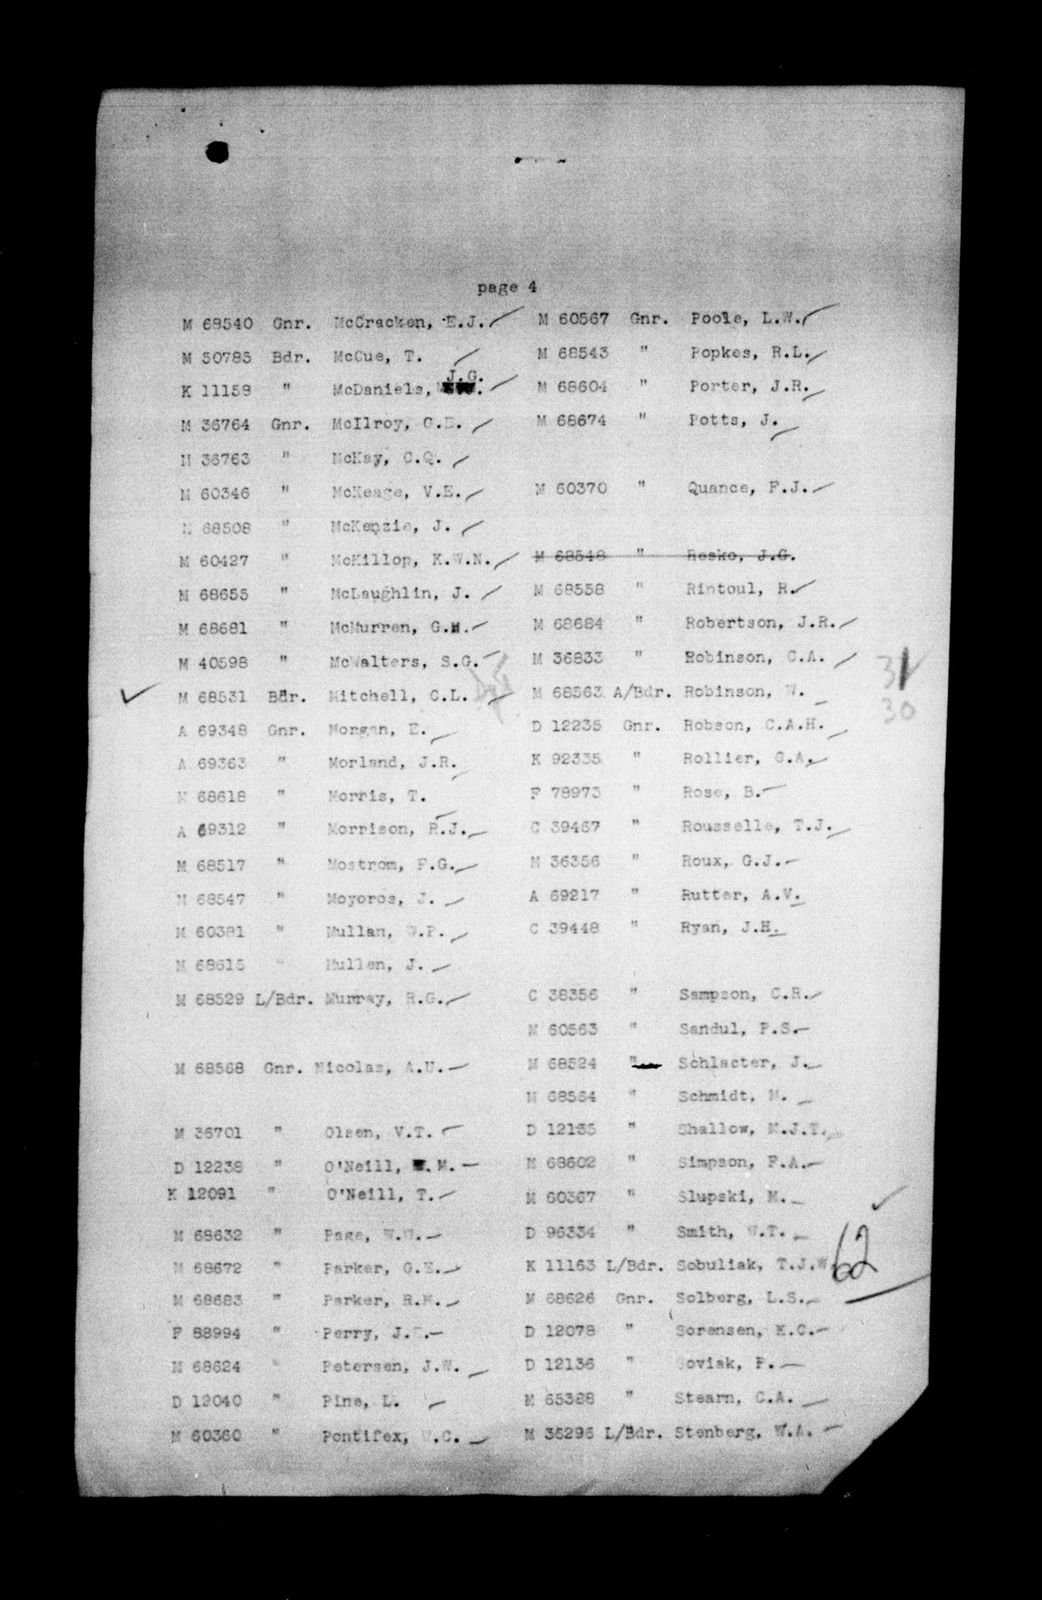 page 4
M 68540 Gnr. McCracken, E.J.
M 50785 Bdr. McCue, T.
J.G.
K 11158 " McDaniels,
M 36764 Gnr. McIlroy,
M 36763 " McKay, C.Q.
M 60346 " McKeage, V.E.
M 68508 " McKenzie, J.
M 60427 " McKillop, K.W.N.
M 68655 " McLaughlin, J.
M 68681 " McMurren, G.H.
M 40598 " McWalters, S.G.
M 68531 Bdr. Mitchell, C.L.
A 69348 Gnr. Morgan, E.
A 69363 " Morland, J.R.
M 68618 " Morris, T.
A 69312 " Morrison, R.J.
M 68517 " Mostrom, F.G.
M 68547 " Moyoros, J.
M 60381 " Mullan, W.P.
M 68615 " Mullen, J.
M 68529 L/Bdr. Murray, R.G.
M 68568 Gnr. Nicolas, A.U.
M 36701 " Olsen, V.T.
D 12238 " O'Neill, M.
K 12091 " O'Neill, T.
M 68632 " Page,
M 68672 " Parker, G.E.
M 68683 " Parker, R.M.
F 88994 " Perry,
M 68624 " Petersen, J.W.
D 12040 " Pine, L.
M 60360 " Pontifex, W.C.
M 60567 Gnr. Poole, L.W.
M 68543 " Popkes, R.L.
M 68604 " Porter, J.R.
M 68674 " Potts, J.
M 60370 " Quance, F.J.
M 68548 " Resko, J.G.
M 68558 " Rintoul, R.
M 68684 " Robertson, J.R.
M 36833 " Robinson, C.A.
M 68563 A/Bdr. Robinson, W.
D 12235 Gnr. Robson, C.A.H.
K 92335 " Rollier, G.A.
F 78973 " Rose, B.
C 39467 " Rousselle, T.J.
M 36356 " Roux, G.J.
A 69217 " Rutter, A.V.
C 39448 " Ryan, J.H.
C 38356 " Sampson, C.R.
M 60563 " Sandul, P.S.
M 68524 " Schlacter, J.
M 68564 " Schmidt, M.
D 12165 " Shallow, M.J.T.
M 68602 " Simpson, F.A.
M 60367 " Slupski, M.
D 96334 " Smith, W.T.
K 11163 L/Bdr. Sobuliak, T.J.W.
M 68626 Gnr. Solberg, L.S.
D 12078 " Sorensen, K.C.
D 12136 " Soviak, P.
M 65388 " Stearn, C.A.
M 36296 L/Bdr. Stenberg, W.A.
31
30
62